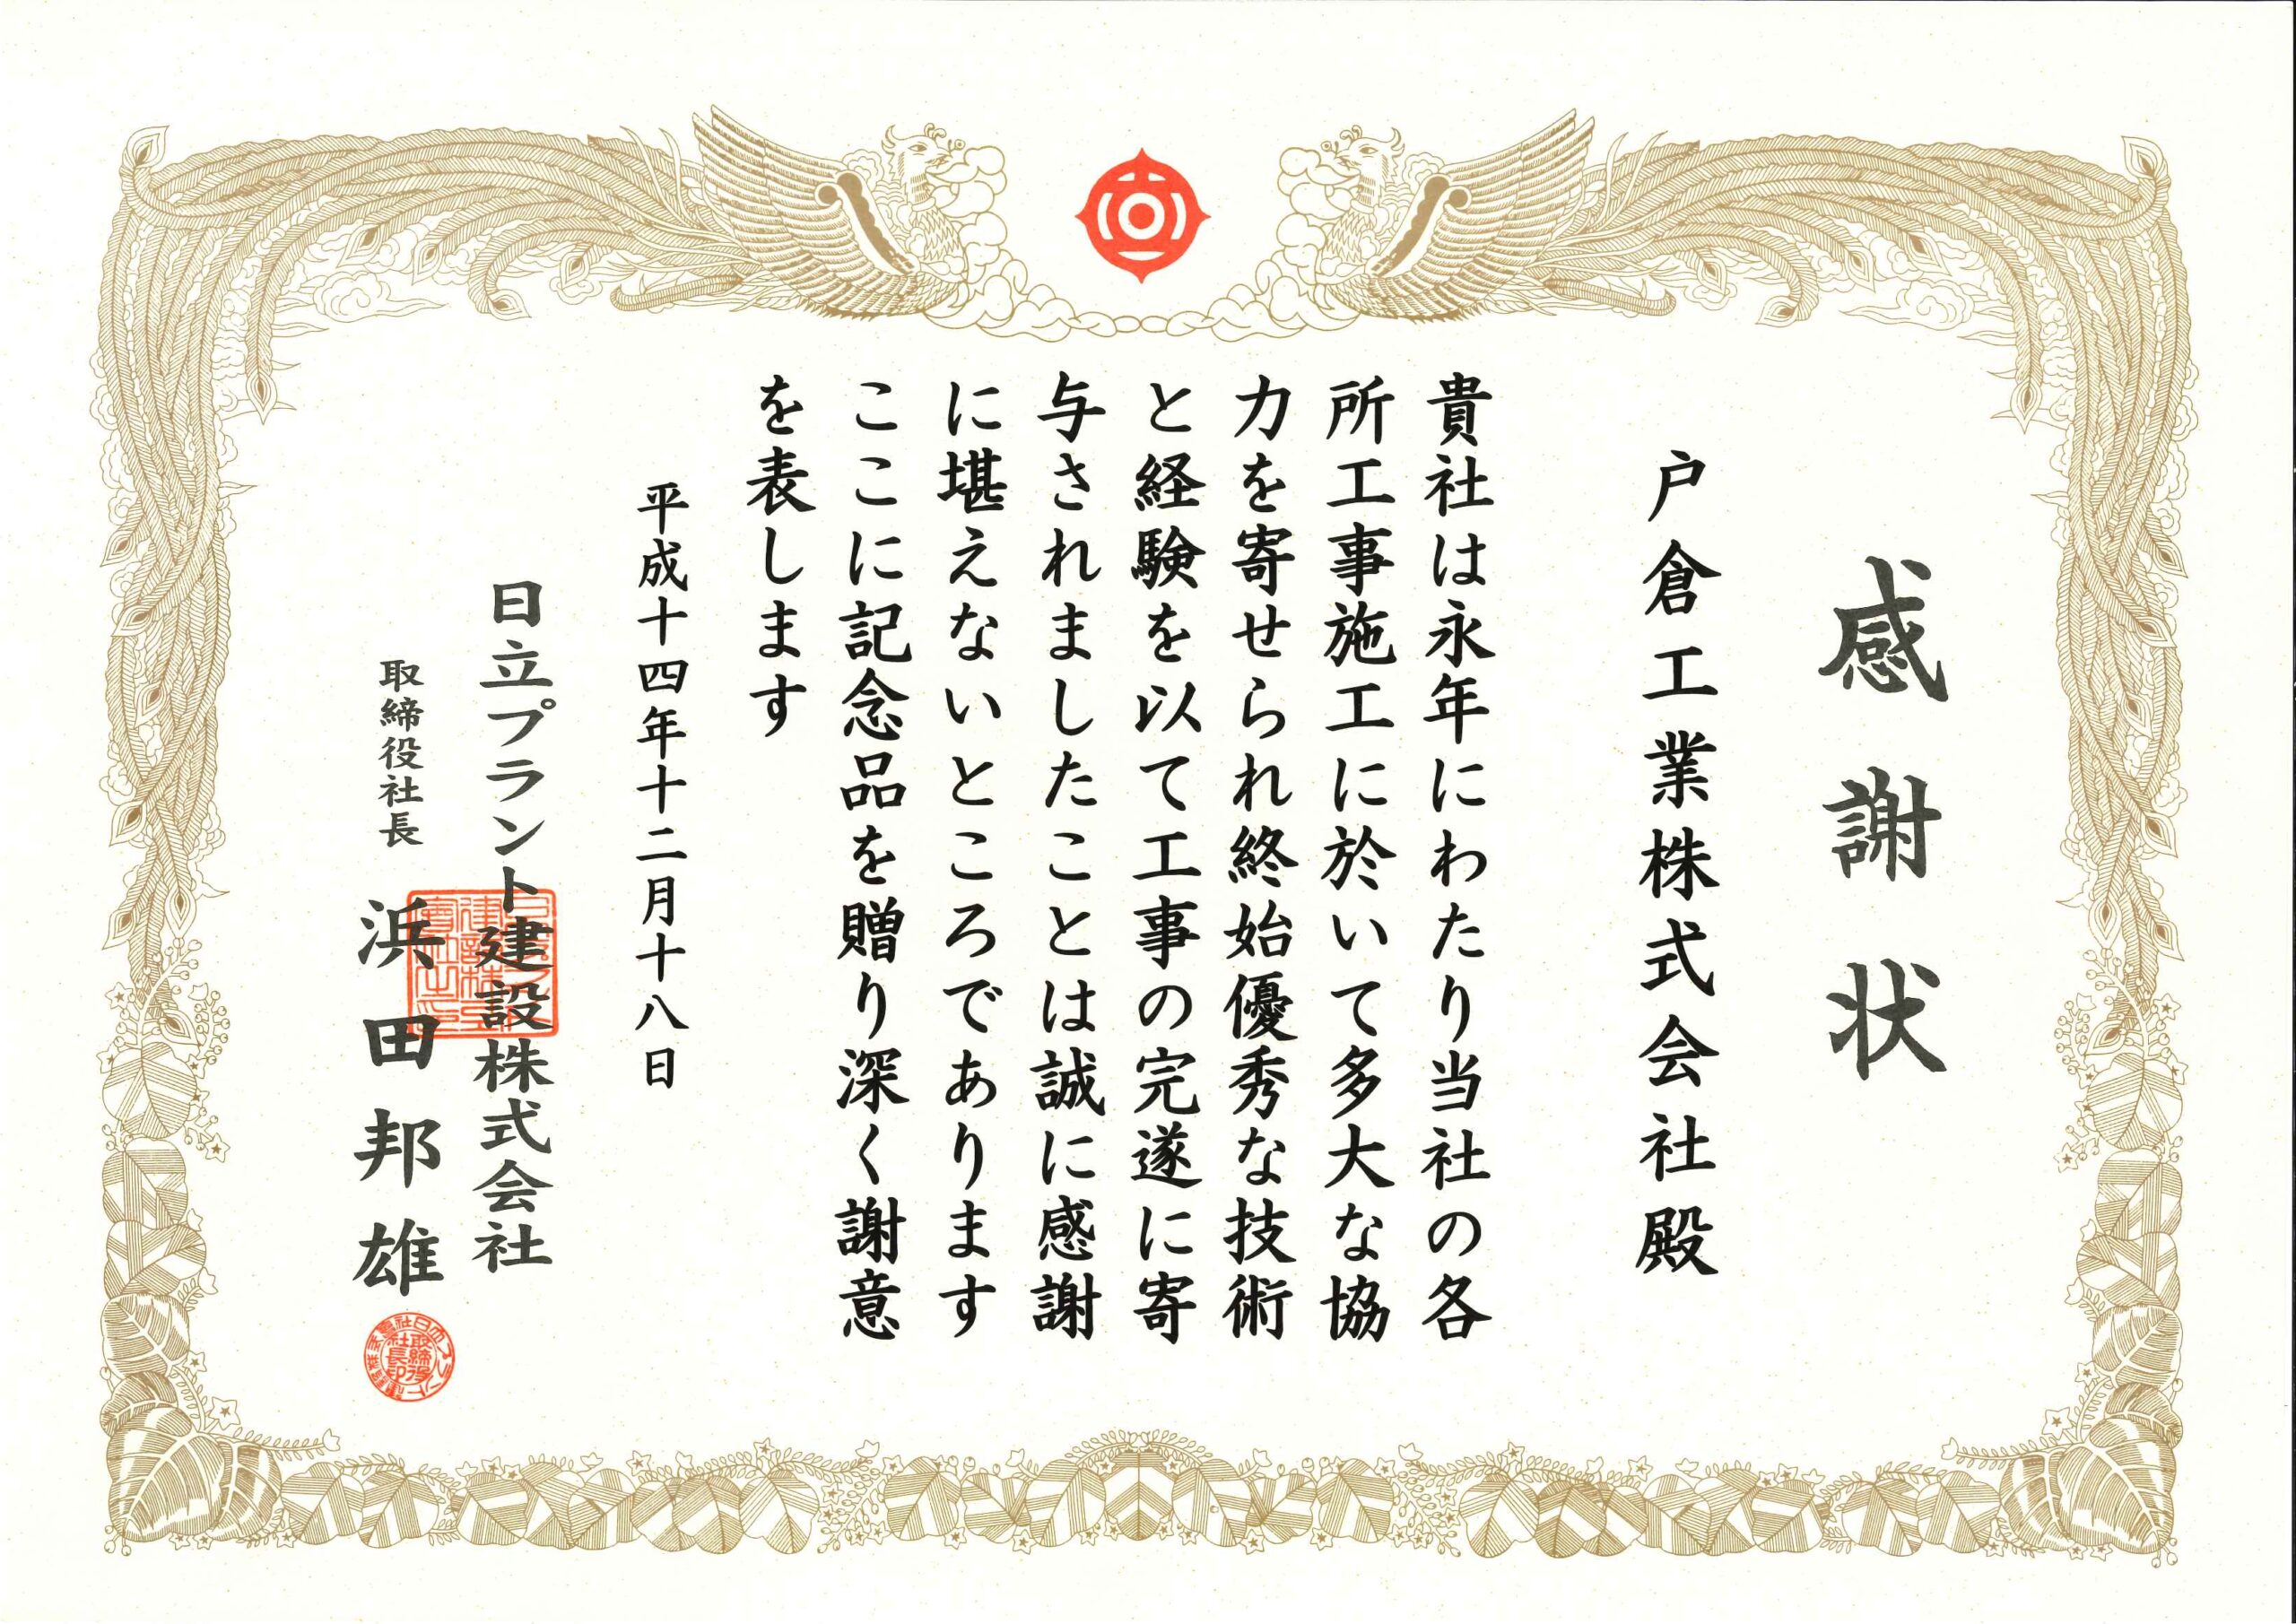 感謝状
戸倉工業株式会社殿
貴社は永年にわたり当社の各
所工事施工に於いて多大な協
力を寄せられ終始優秀な技術
と経験を以て工事の完遂に寄
与されましたことは誠に感謝
に堪えないところであります
ここに記念品を贈り深く謝意
を表します
平成十四年十二月十八日
日立プラント建設株式会社
取締役社長 浜田邦雄